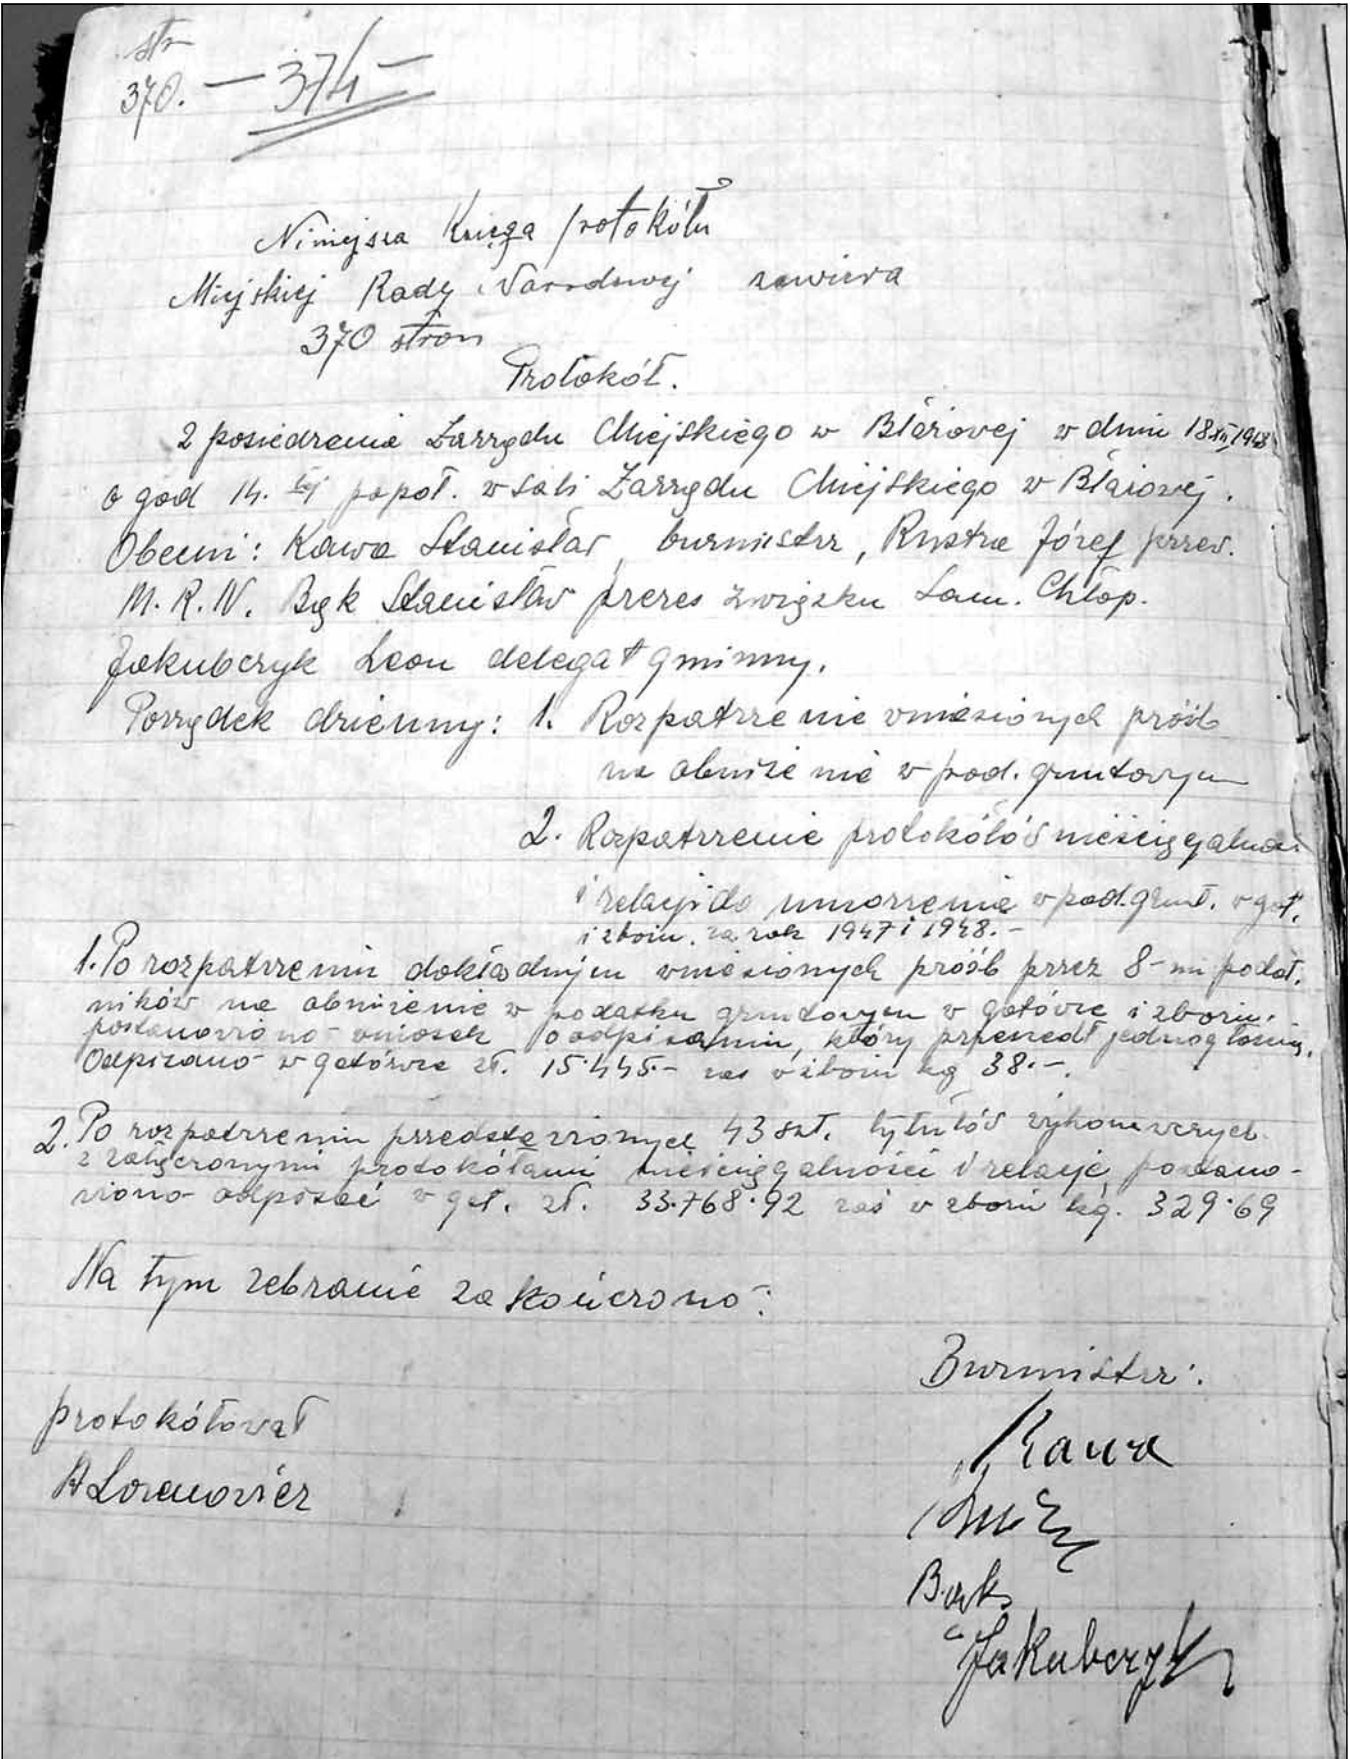 str
370. — 374 —
Niniejsza Księga protokółu
Miejskiej Rady Narodowej zawiera
370 stron
Protokół.
z posiedzenia Zarządu Miejskiego w Błażowej w dniu 18.XII.1948
o god 14.tej popoł. w sali Zarządu Miejskiego w Błażowej.
Obecni: Kawa Stanisław, burmistrz, Józef przew.
M.R.N. Bąk Stanisław prezes związku Sam. Chłop.
Jakubczyk Leon delegat gminny.
Porządek dzienny: 1. Rozpatrzenie wniesionych próśb
na obniżenie w pod. gruntowym
2. Rozpatrzenie protokółów nieściągalności
i relacji do umorzenia w pod. grunt. w got.
i zbożu. za rok 1947 i 1948.-
1. Po rozpatrzeniu dokładnym wniesionych próśb przez 8-mi podat.
ników na obniżenie w podatku gruntowym w gotówce i zbożu.
postanowiono wniosek o odpisaniu, który przeszedł jednogłośnie.
Odpisano w gotówce zł. 15.445.- zaś w zbożu kg 38.-.
2. Po rozpatrzeniu przedstawionych 43 szt. tytułów wykonawczych
z załączonymi protokółami nieściągalności i relacje, postano-
wiono odpisać w got. zł. 33.768.92 zaś w zbożu kg. 329.69
Na tym zebranie zakończono:
Burmistrz:
protokółował
Kawa
Bąk
Jakubczyk